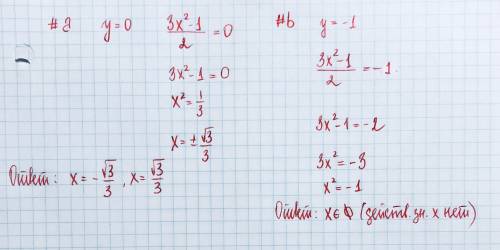 # а y=0 (3x²-1)/2 = 0
3x²-1=0
x²=1/3
x=±√3/3
Ответ: x=-√3/3, x=√3/3
#b y=-1
(3x²-1)/2 = -1
3x²-1=-2
3x²=-3
x²=-1
Ответ: x∈ϕ (действ. зн. x нет)